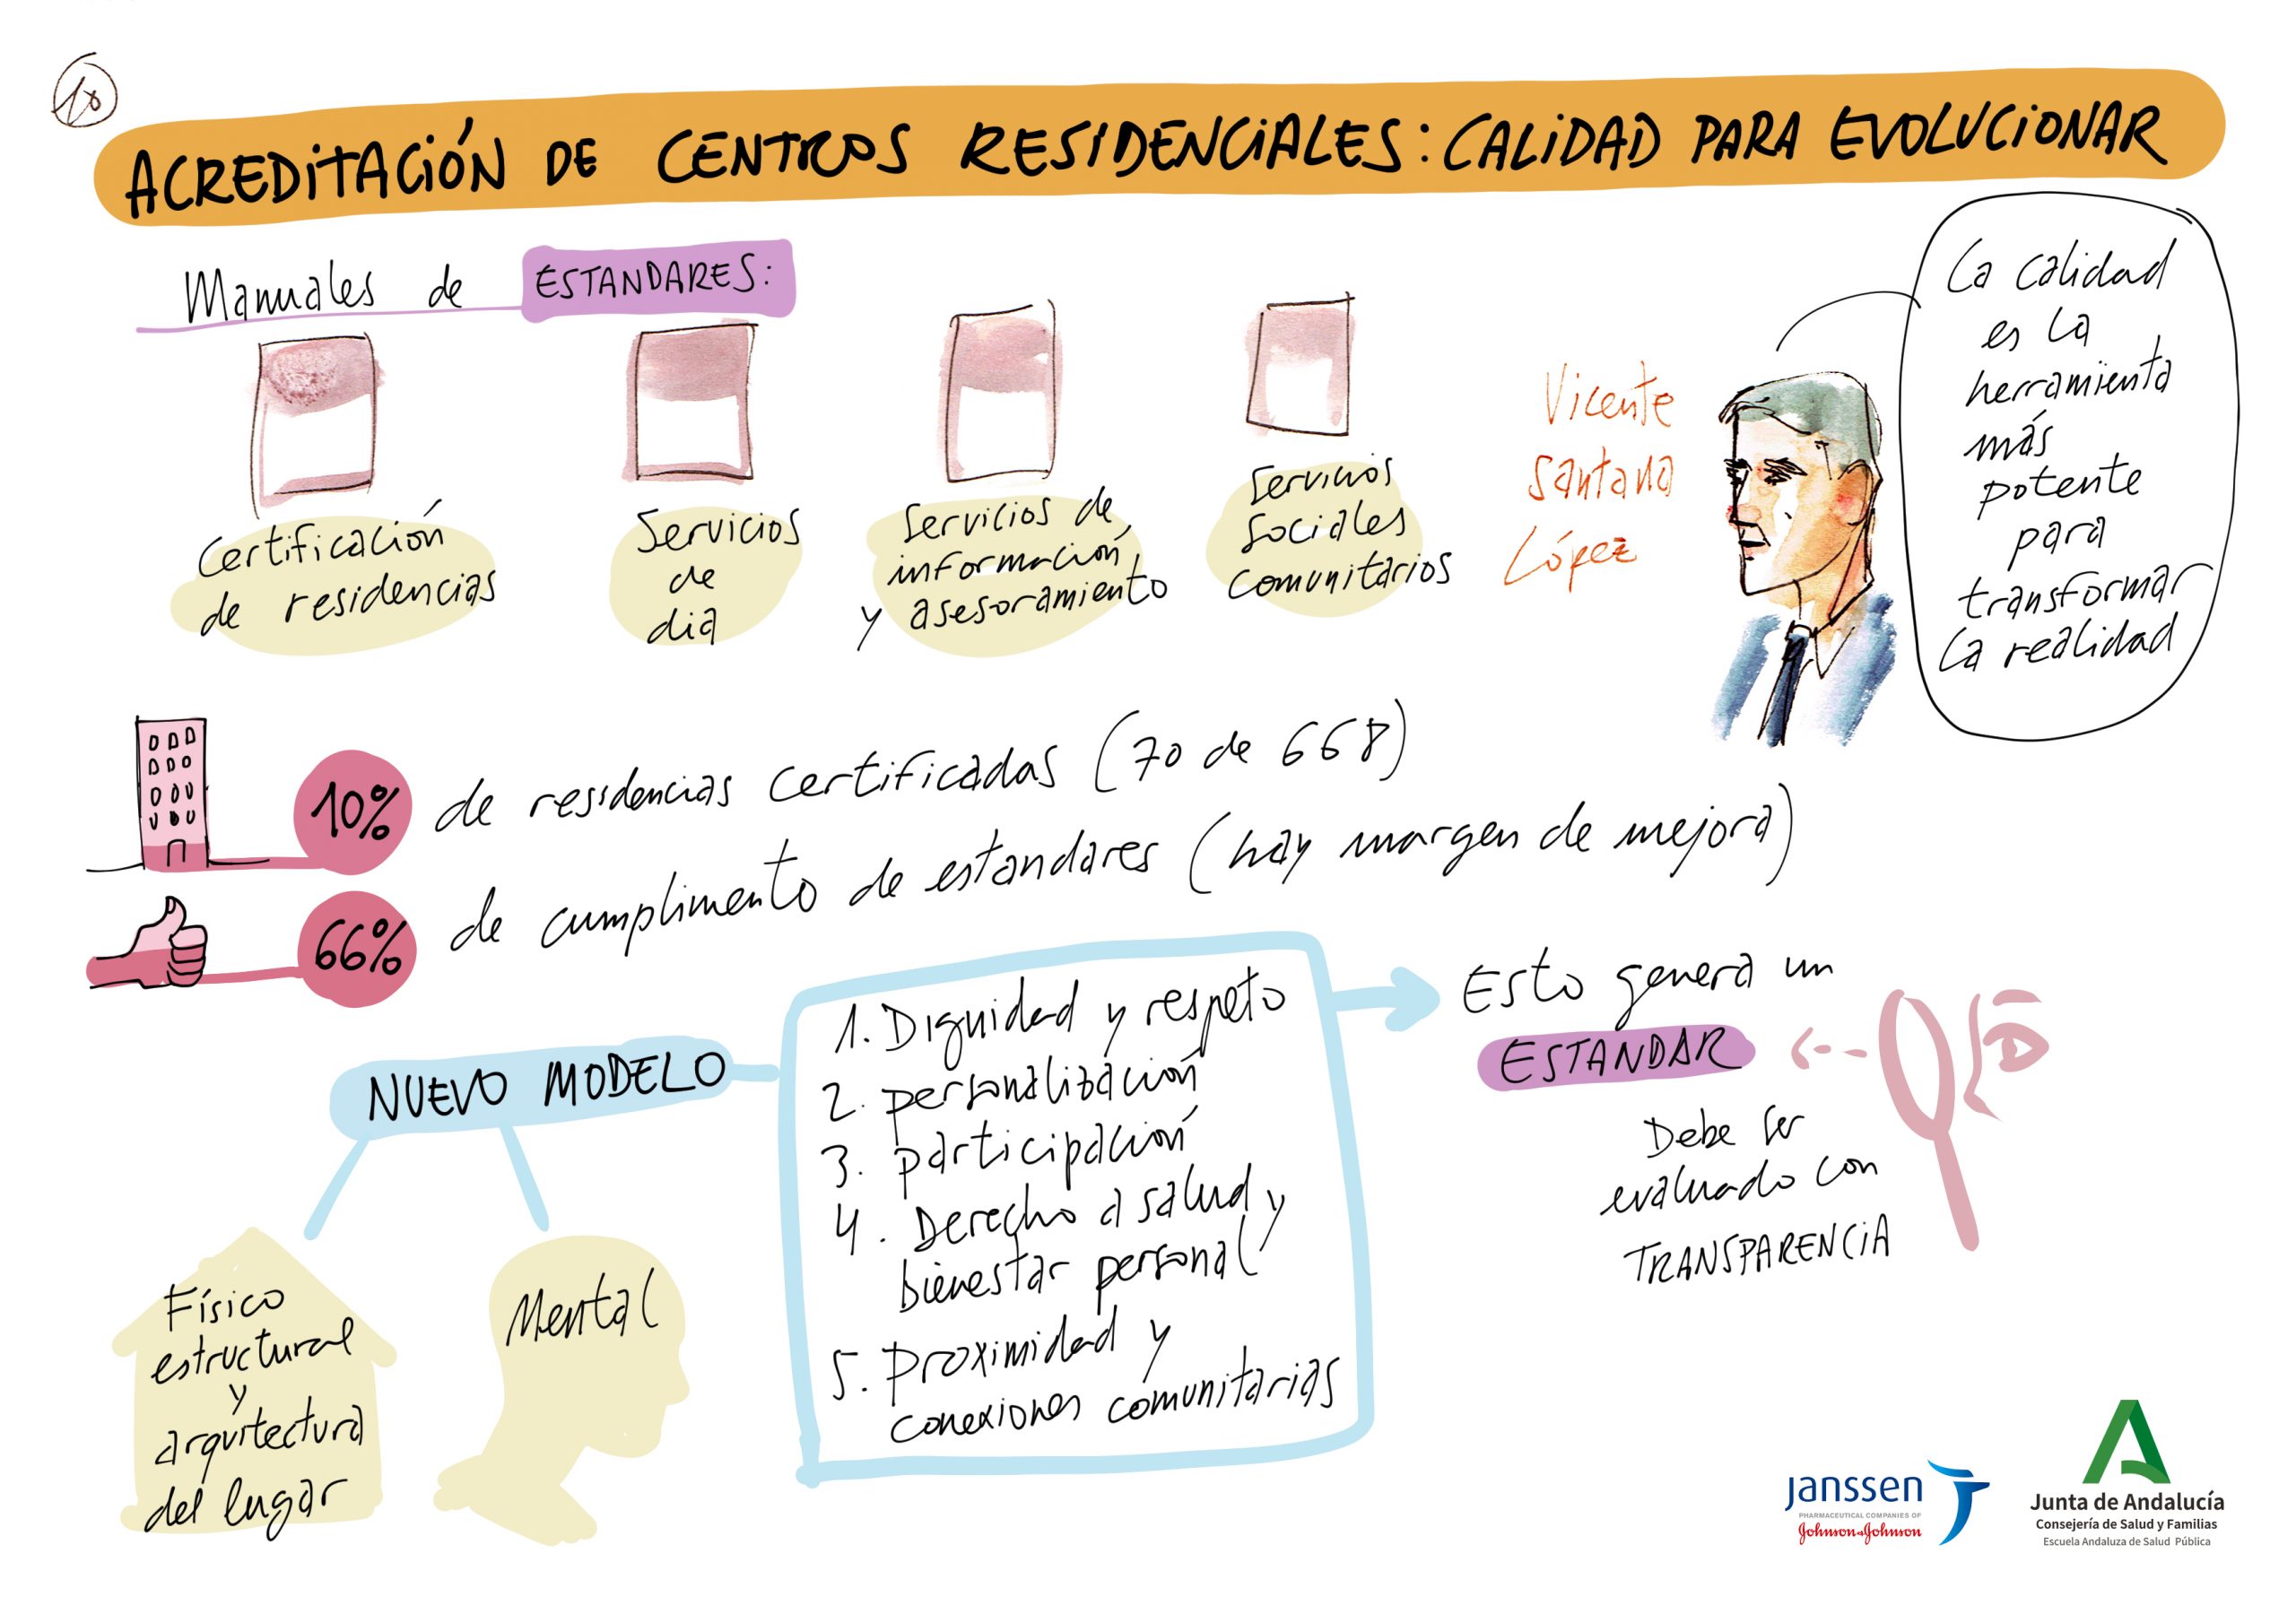 10
ACREDITACIÓN DE CENTROS RESIDENCIALES: CALIDAD PARA EVOLUCIONAR
Manuales de ESTANDARES:
Certificación
de residencias
Servicios
de
dia
Servicios de
información
y asesoramiento
Servicios
sociales
comunitarios
Vicente
Santana
López
La calidad
es la
herramienta
más
potente
para
transformar
la realidad
10% de residencias certificadas (70 de 668)
66% de cumplimento de estandares (hay margen de mejora)
NUEVO MODELO
Físico
estructural
y
arquitectura
del lugar
Mental
1. Dignidad y respeto
2. personalización
3. participación
4. Derecho a salud y
bienestar personal
5. Proximidad y
conexiones comunitarias
Esto genera un
ESTANDAR
Debe ser
evaluado con
TRANSPARENCIA
janssen
PHARMACEUTICAL COMPANIES OF
Johnson & Johnson
Junta de Andalucía
Consejería de Salud y Familias
Escuela Andaluza de Salud Pública